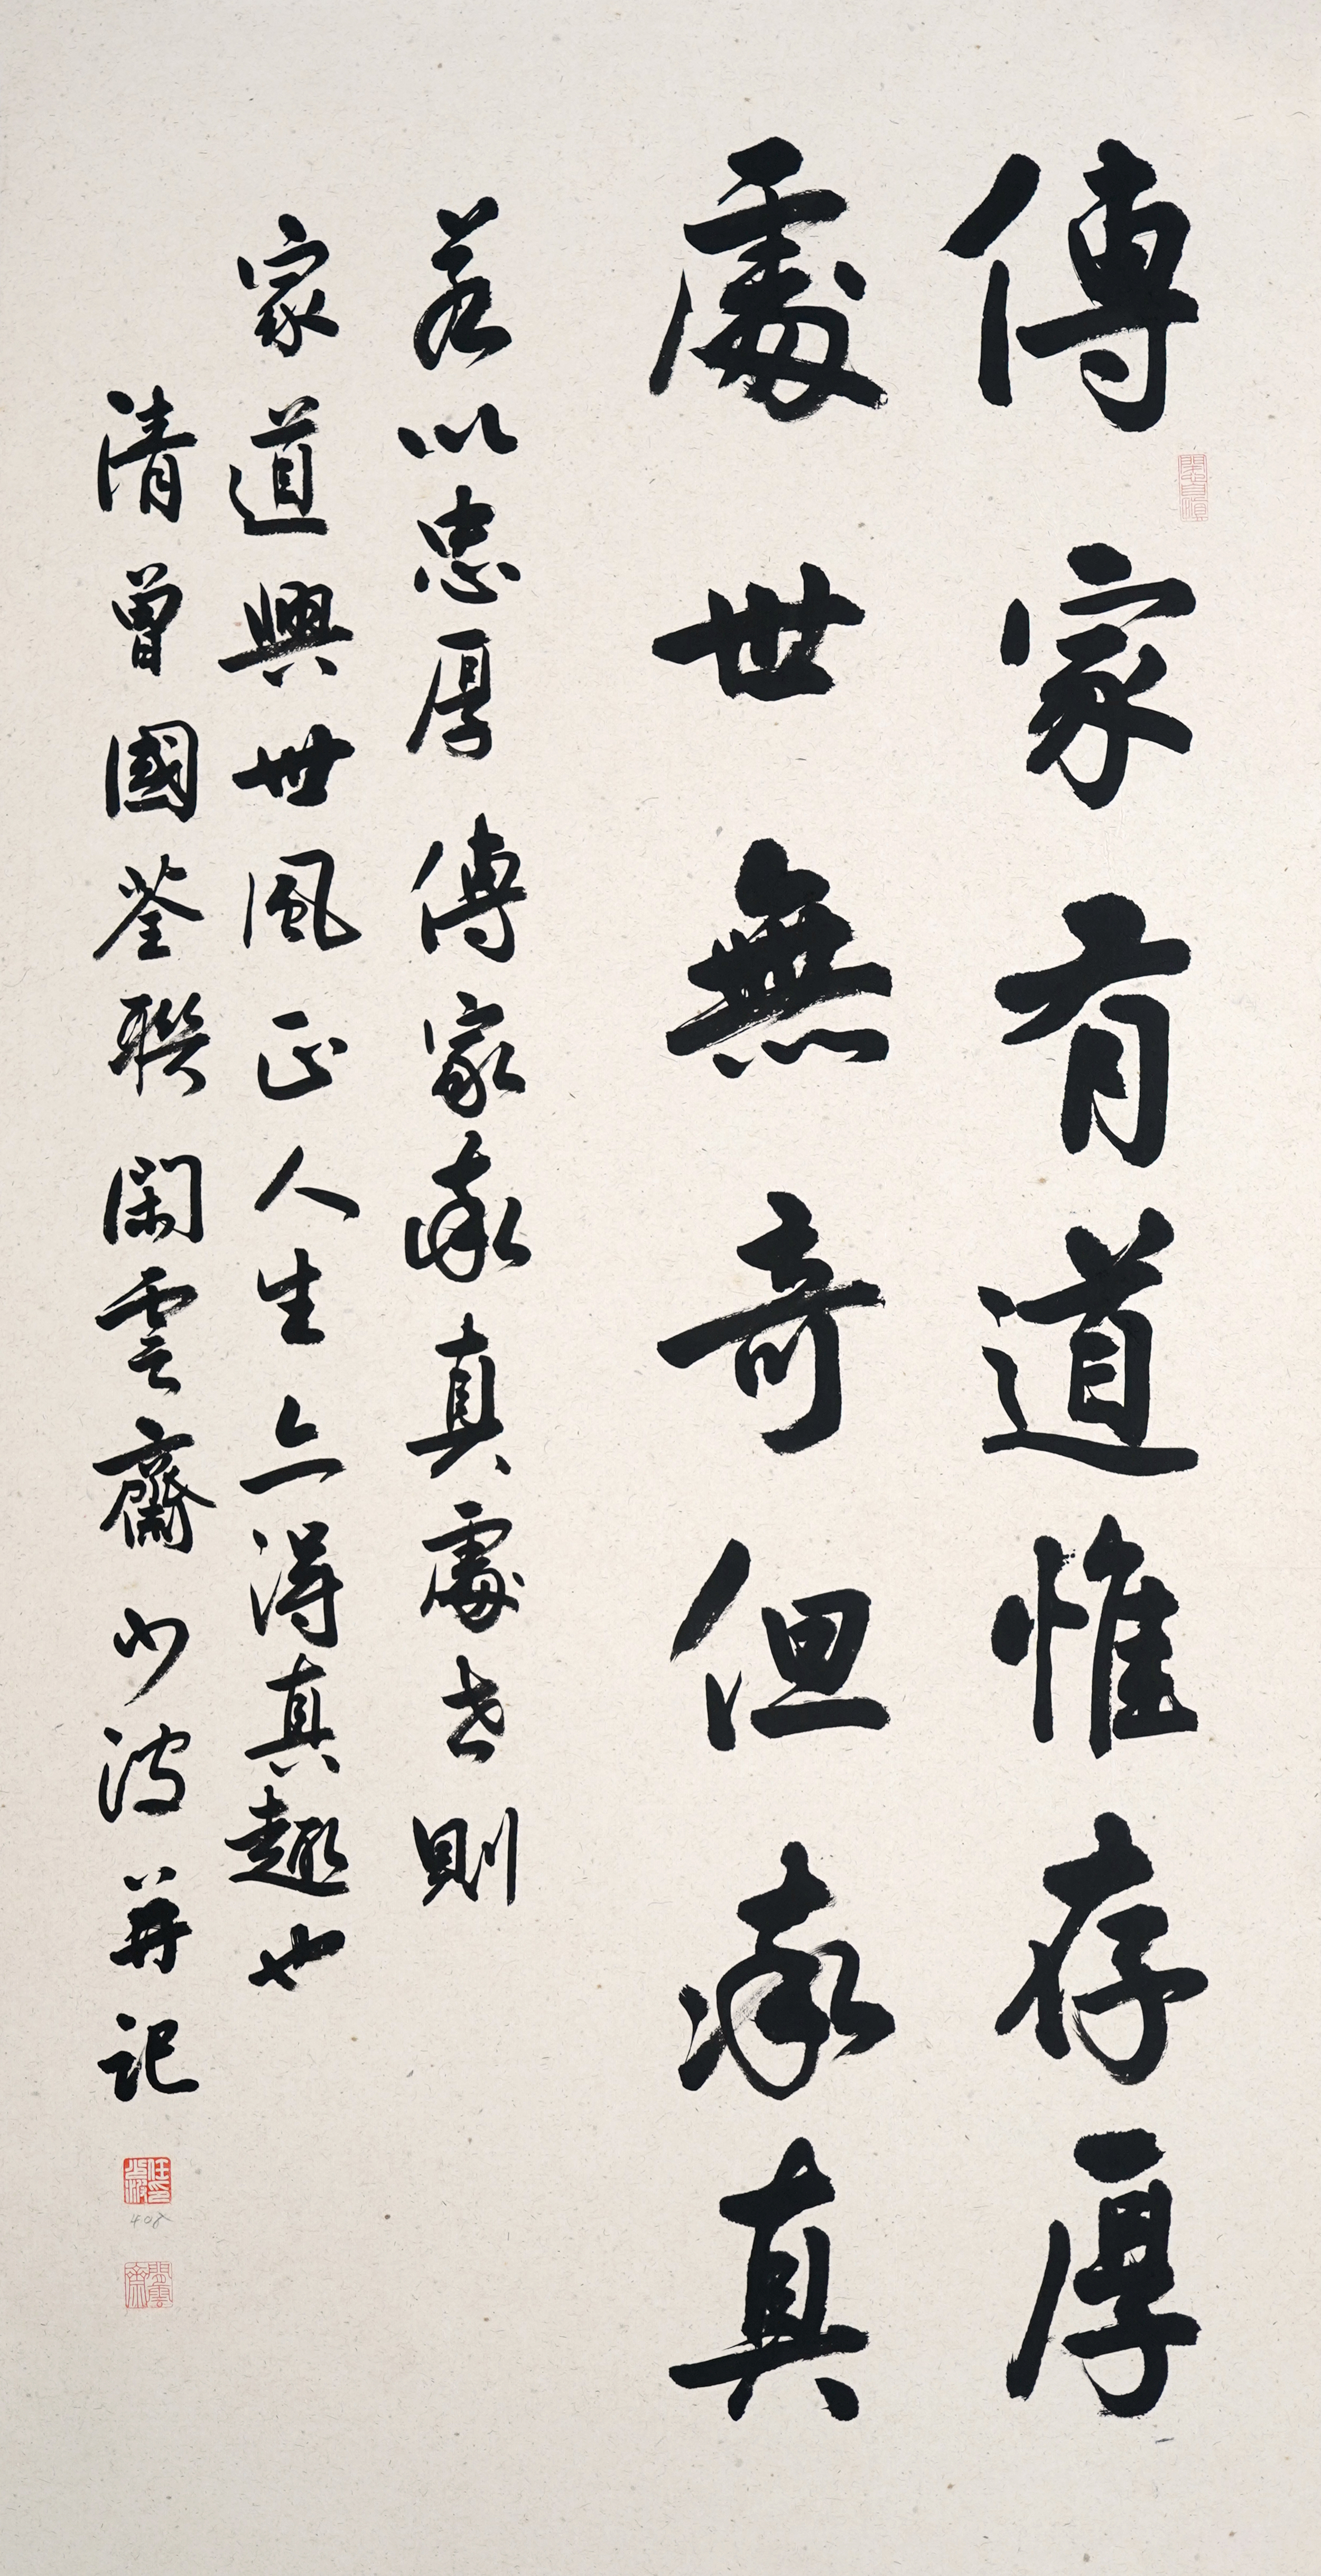 傳家有道惟存厚
處世無奇但率真
若以忠厚傳家率真處世則
家道興世風正人生亦得真趣也
清曾國荃聯閑雲齋少波并記
任印少波
408
閑雲齋